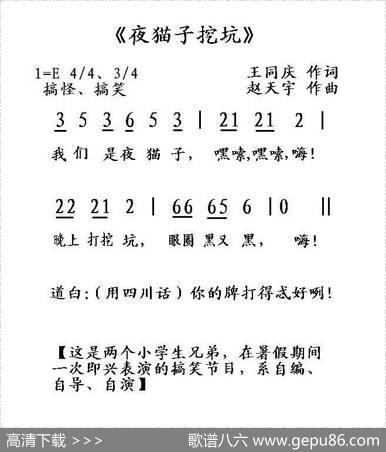 《夜猫子挖坑》
1=E 4/4、3/4 王同庆 作词
搞怪、搞笑 赵天宇 作曲
3 5 3 6 5 3 | 21 21 2 |
我们 是夜 猫 子， 嘿嗦,嘿嗦,嗨！
22 21 2 | 66 65 6 | 0 ‖
晚上 打挖 坑， 眼圈 黑又 黑， 嗨！
道白:（用四川话）你的牌打得忒好咧！
【这是两个小学生兄弟，在暑假期间
一次即兴表演的搞笑节目，系自编、
自导、自演】
高清下载 >>> 歌谱八六 www.gepu86.com